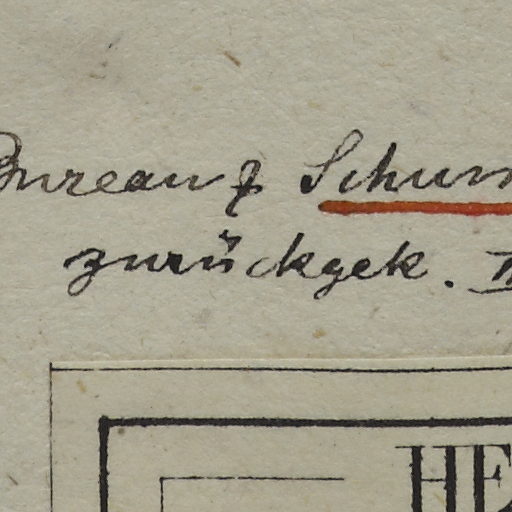 Bureau f Schum
zurückgek.
HE